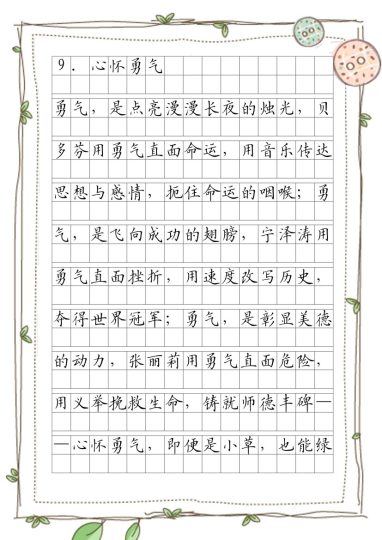 9．心怀勇气
勇气，是点亮漫漫长夜的烛光，贝
多芬用勇气直面命运，用音乐传达
思想与感情，扼住命运的咽喉；勇
气，是飞向成功的翅膀，宁泽涛用
勇气直面挫折，用速度改写历史，
夺得世界冠军；勇气，是彰显美德
的动力，张丽莉用勇气直面危险，
用义举挽救生命，铸就师德丰碑—
—心怀勇气，即便是小草，也能绿